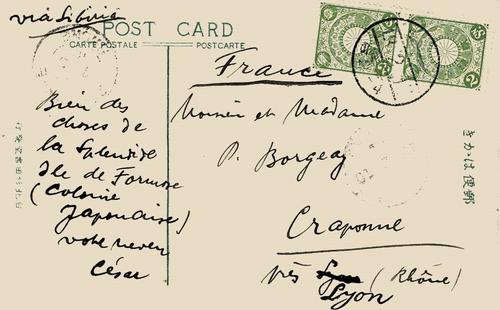 via Sibérie
POST CARD
CARTE POSTALE
POSTCARTE
France
Bien des
choses de
la Splendide
Ile de Formose
(Colonie
Japonaise)
votre neveu
César
Monsieur et Madame
P. Borgeay
Craponne
près Lyon (Rhône)
Lyon
きかは便郵